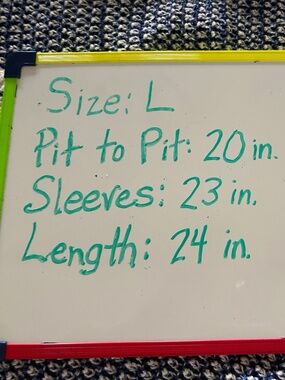 Size: L
Pit to Pit: 20 in.
Sleeves: 23 in.
Length: 24 in.